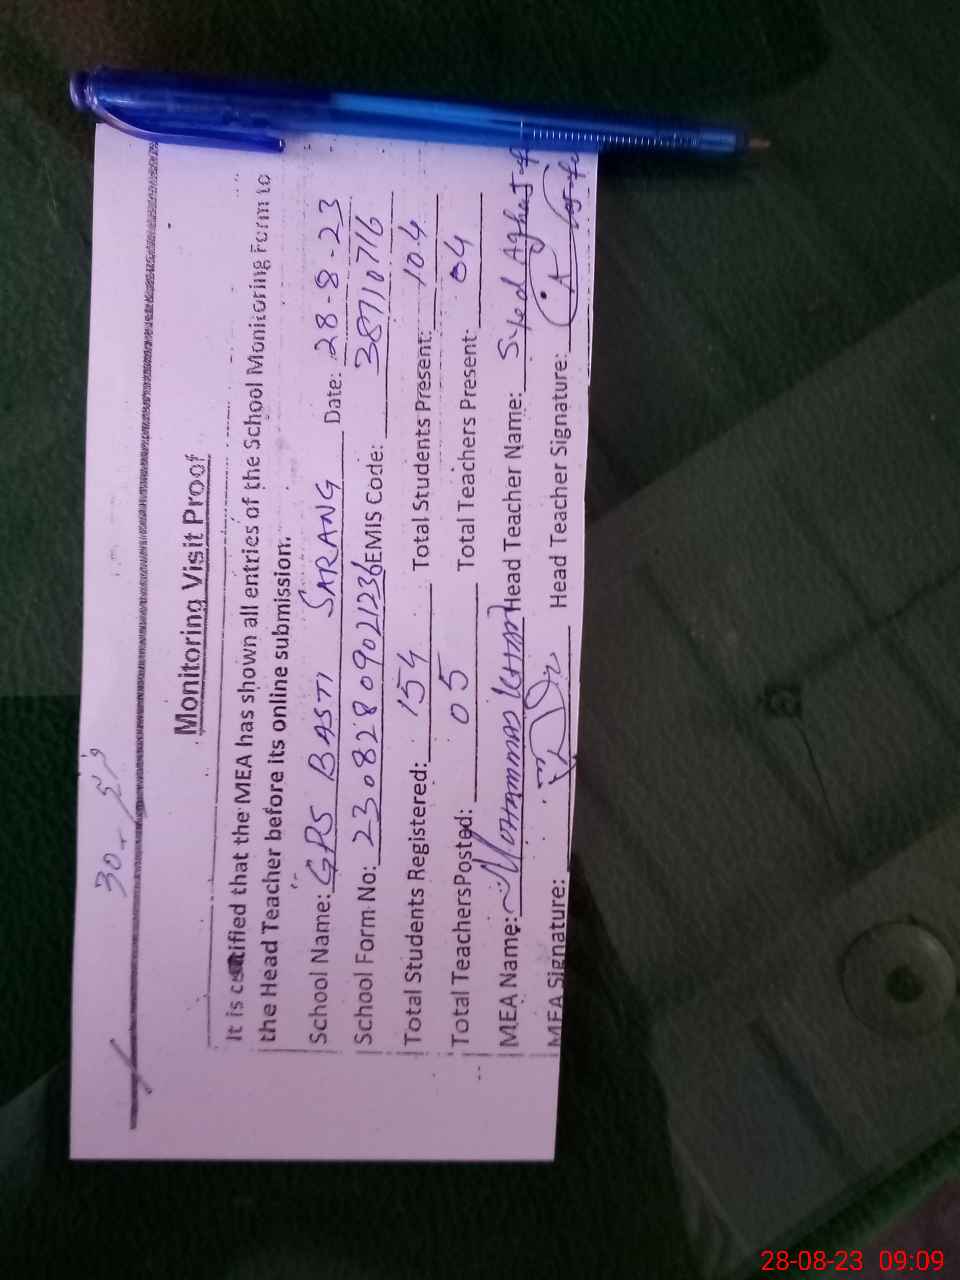 30-
Monitoring Visit Proof
It is certified that the MEA has shown all entries of the School Monitoring Form to
the Head Teacher before its online submission.
School Name: GPS BASTI SARANG Date: 28-8-23
School Form No: 23082809021236 EMIS Code: 38710716
Total Students Registered: 154 Total Students Present: 104
Total Teachers Posted: 05 Total Teachers Present: 04
MEA Name: MOHAMMAD Head Teacher Name: Syed
MEA Signature: Head Teacher Signature:
28-08-23 09:09